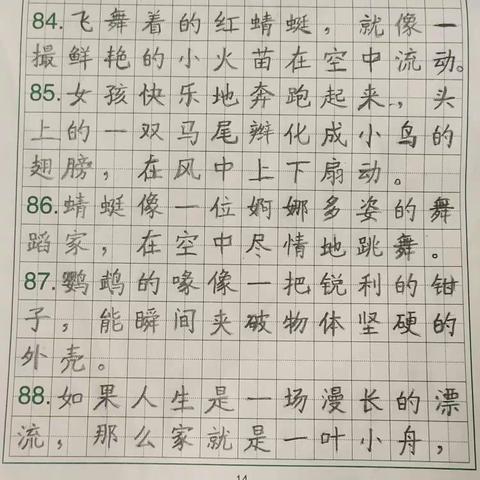 84.飞舞着的红蜻蜓，就像一
撮鲜艳的小火苗在空中流动。
85.女孩快乐地奔跑起来，头
上的一双马尾辫化成小鸟的
翅膀，在风中上下扇动。
86.蜻蜓像一位婀娜多姿的舞
蹈家，在空中尽情地跳舞。
87.鹦鹉的喙像一把锐利的钳
子，能瞬间夹破物体坚硬的
外壳。
88.如果人生是一场漫长的漂
流，那么家就是一叶小舟，
14